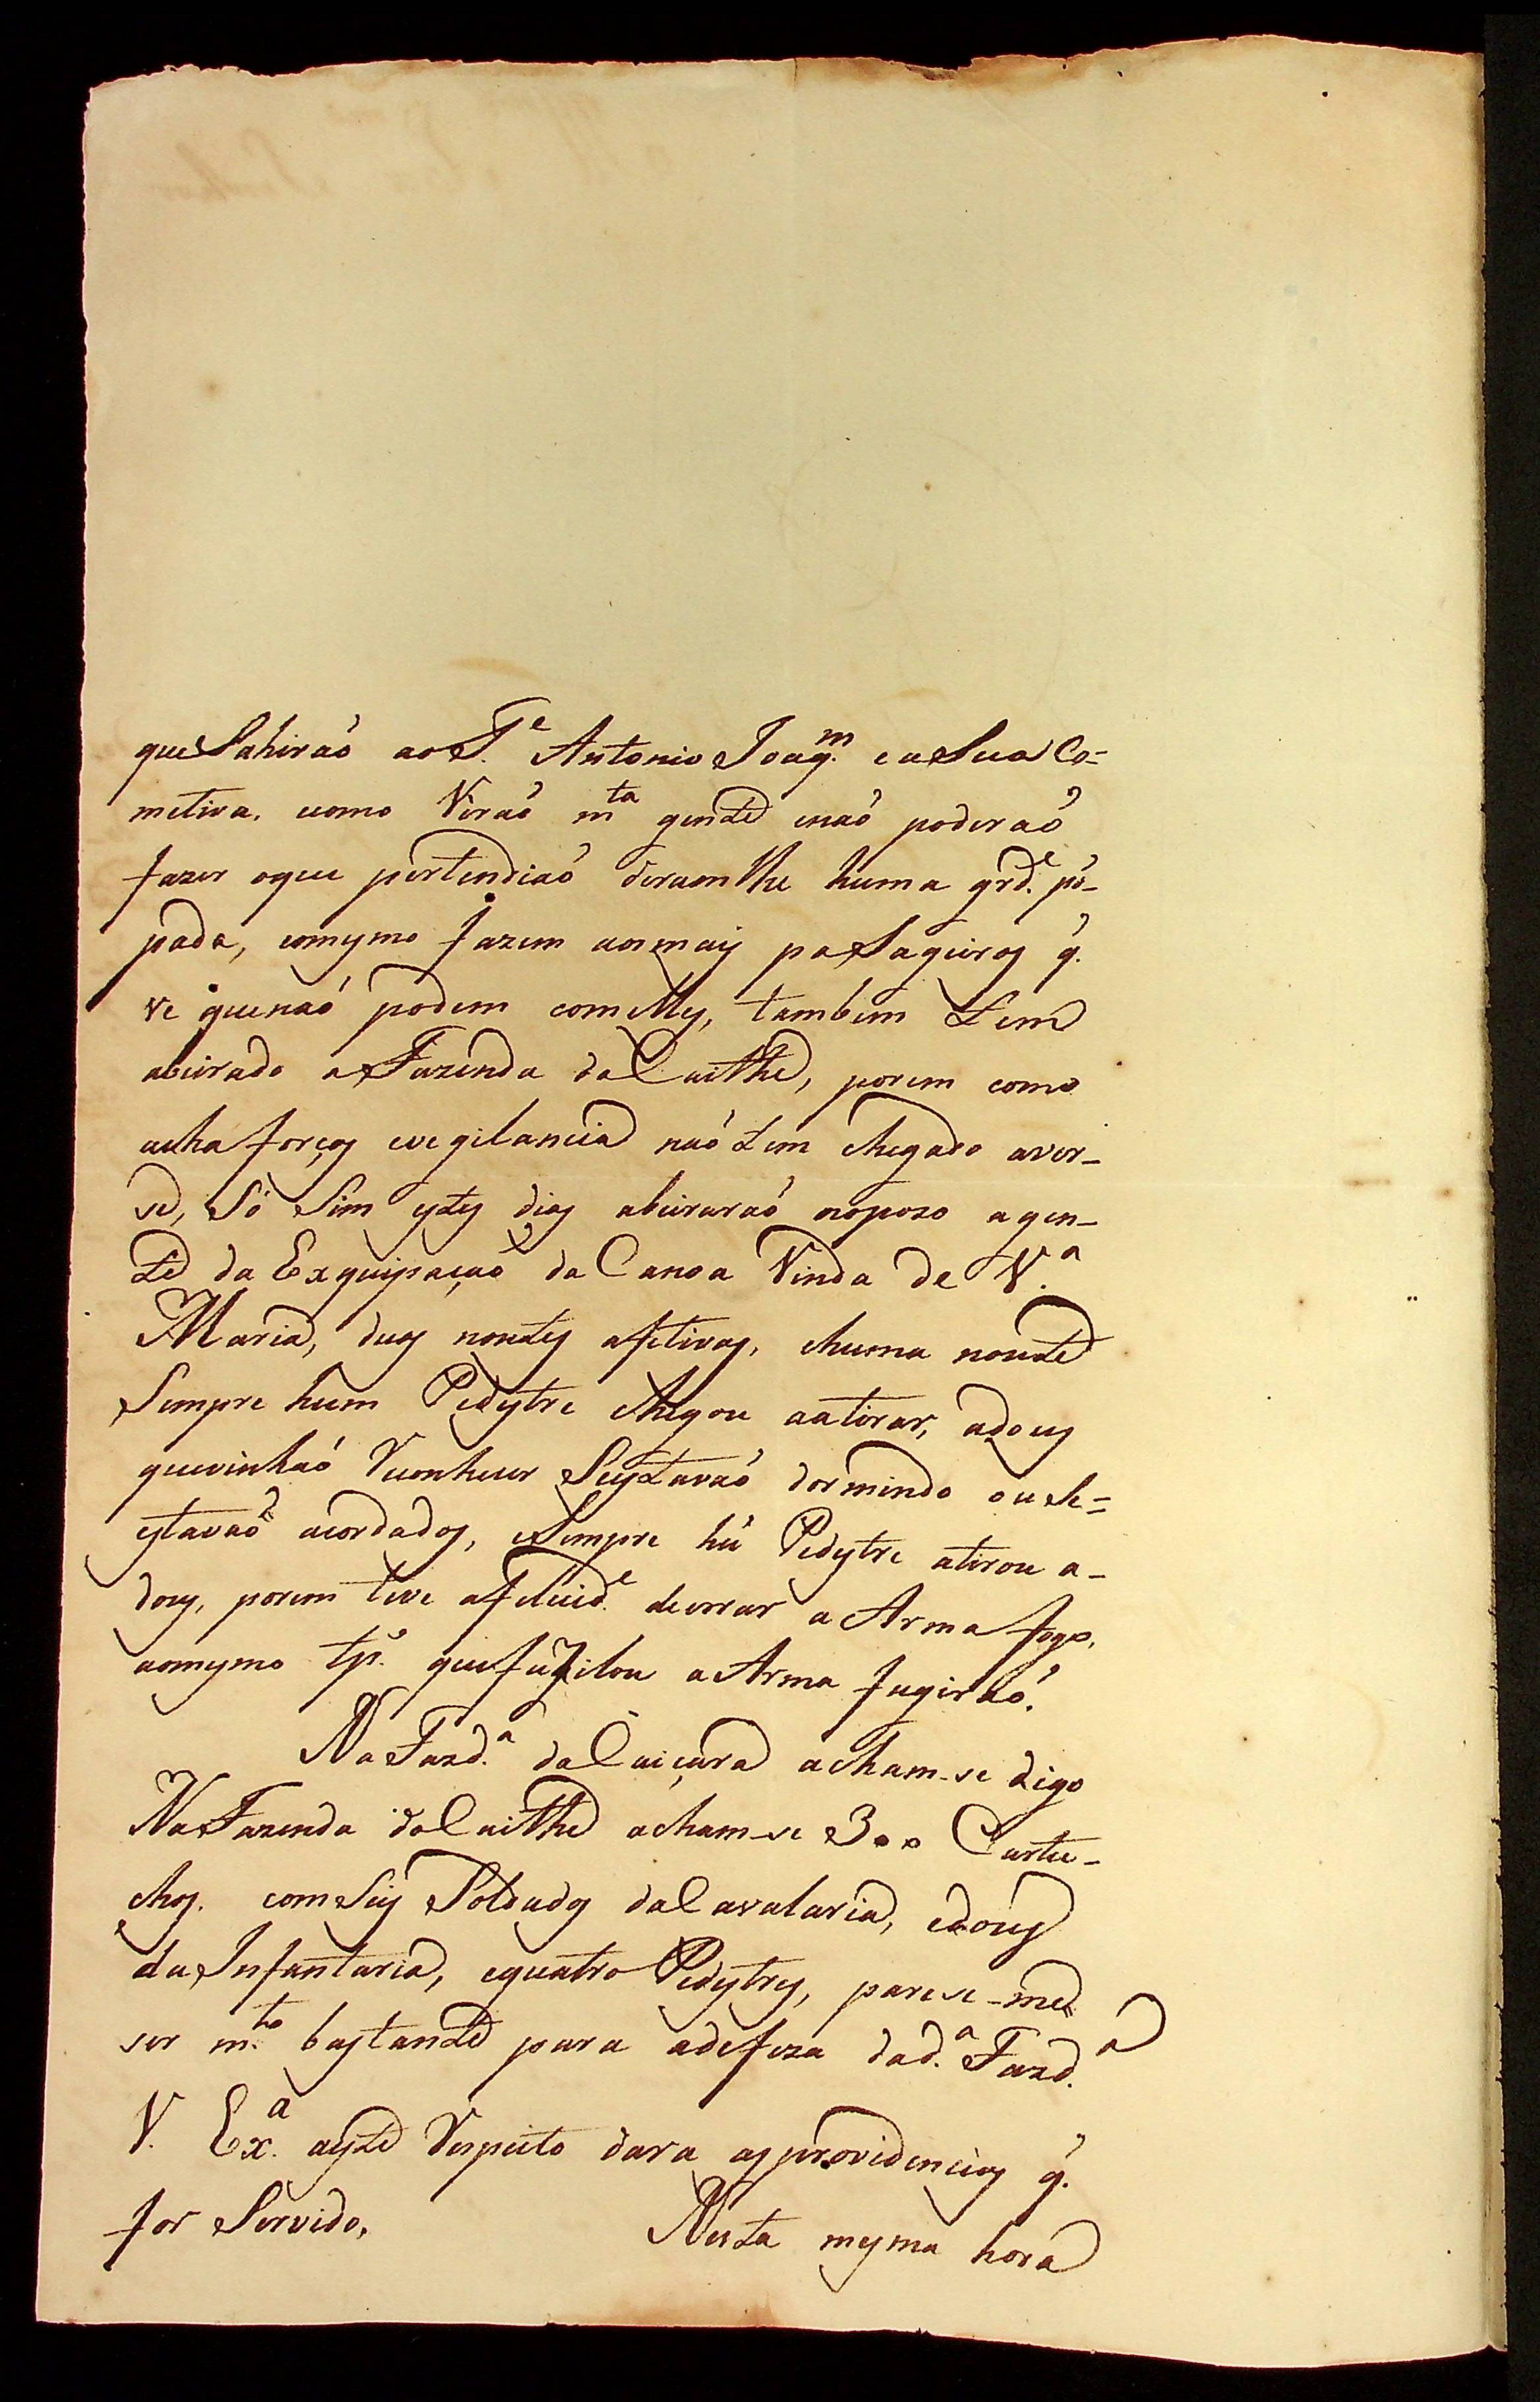 que Sahiraõ ao T.e Antonio Joaq.m e a Sua Co=
metiva, como Viraõ m.ta gente enaõ poderaõ
fazer oque pertendiaõ deram lhe huma grd.e po-
pada, omesmo fazem aos mais pasageiros q.
ve que naõ podem com elles, tambem tem
abeirado a Fazenda da Caithe, porem como
acha forças evegilancia naõ tem chegado aver-
se, Só Sim estes dias abeiraraõ no pozo agen-
te da Exquipaçaõ da Canoa Vinda de V.a
Maria, duas noutes afetivas, ehuma noute
Sempre hum Pedestre chegou aatirar, adous
que vinhaõ Reconhecer Se estavaõ dormindo ou se=
estavaõ acordados, eSempre hũ Pedestre atirou a-
dous, porem teve afelicid.e de errar a Arma fogo,
aomesmo tp.o que fuzilou a Arma fugiraõ.
Na Fazd.a da Caiçara acham-se digo
Na Fazenda da Caithe acham-se 300 Cartu-
chos, com Seis Soldados da Cavalaria, edous
da Infantaria, equatro Pedestres, parese-me
ser m.to bastante para adefeza dad.a Fazd.a
V. Ex.a aeste Respeito dara as providencias q.
for Servido, Nesta mesma hora